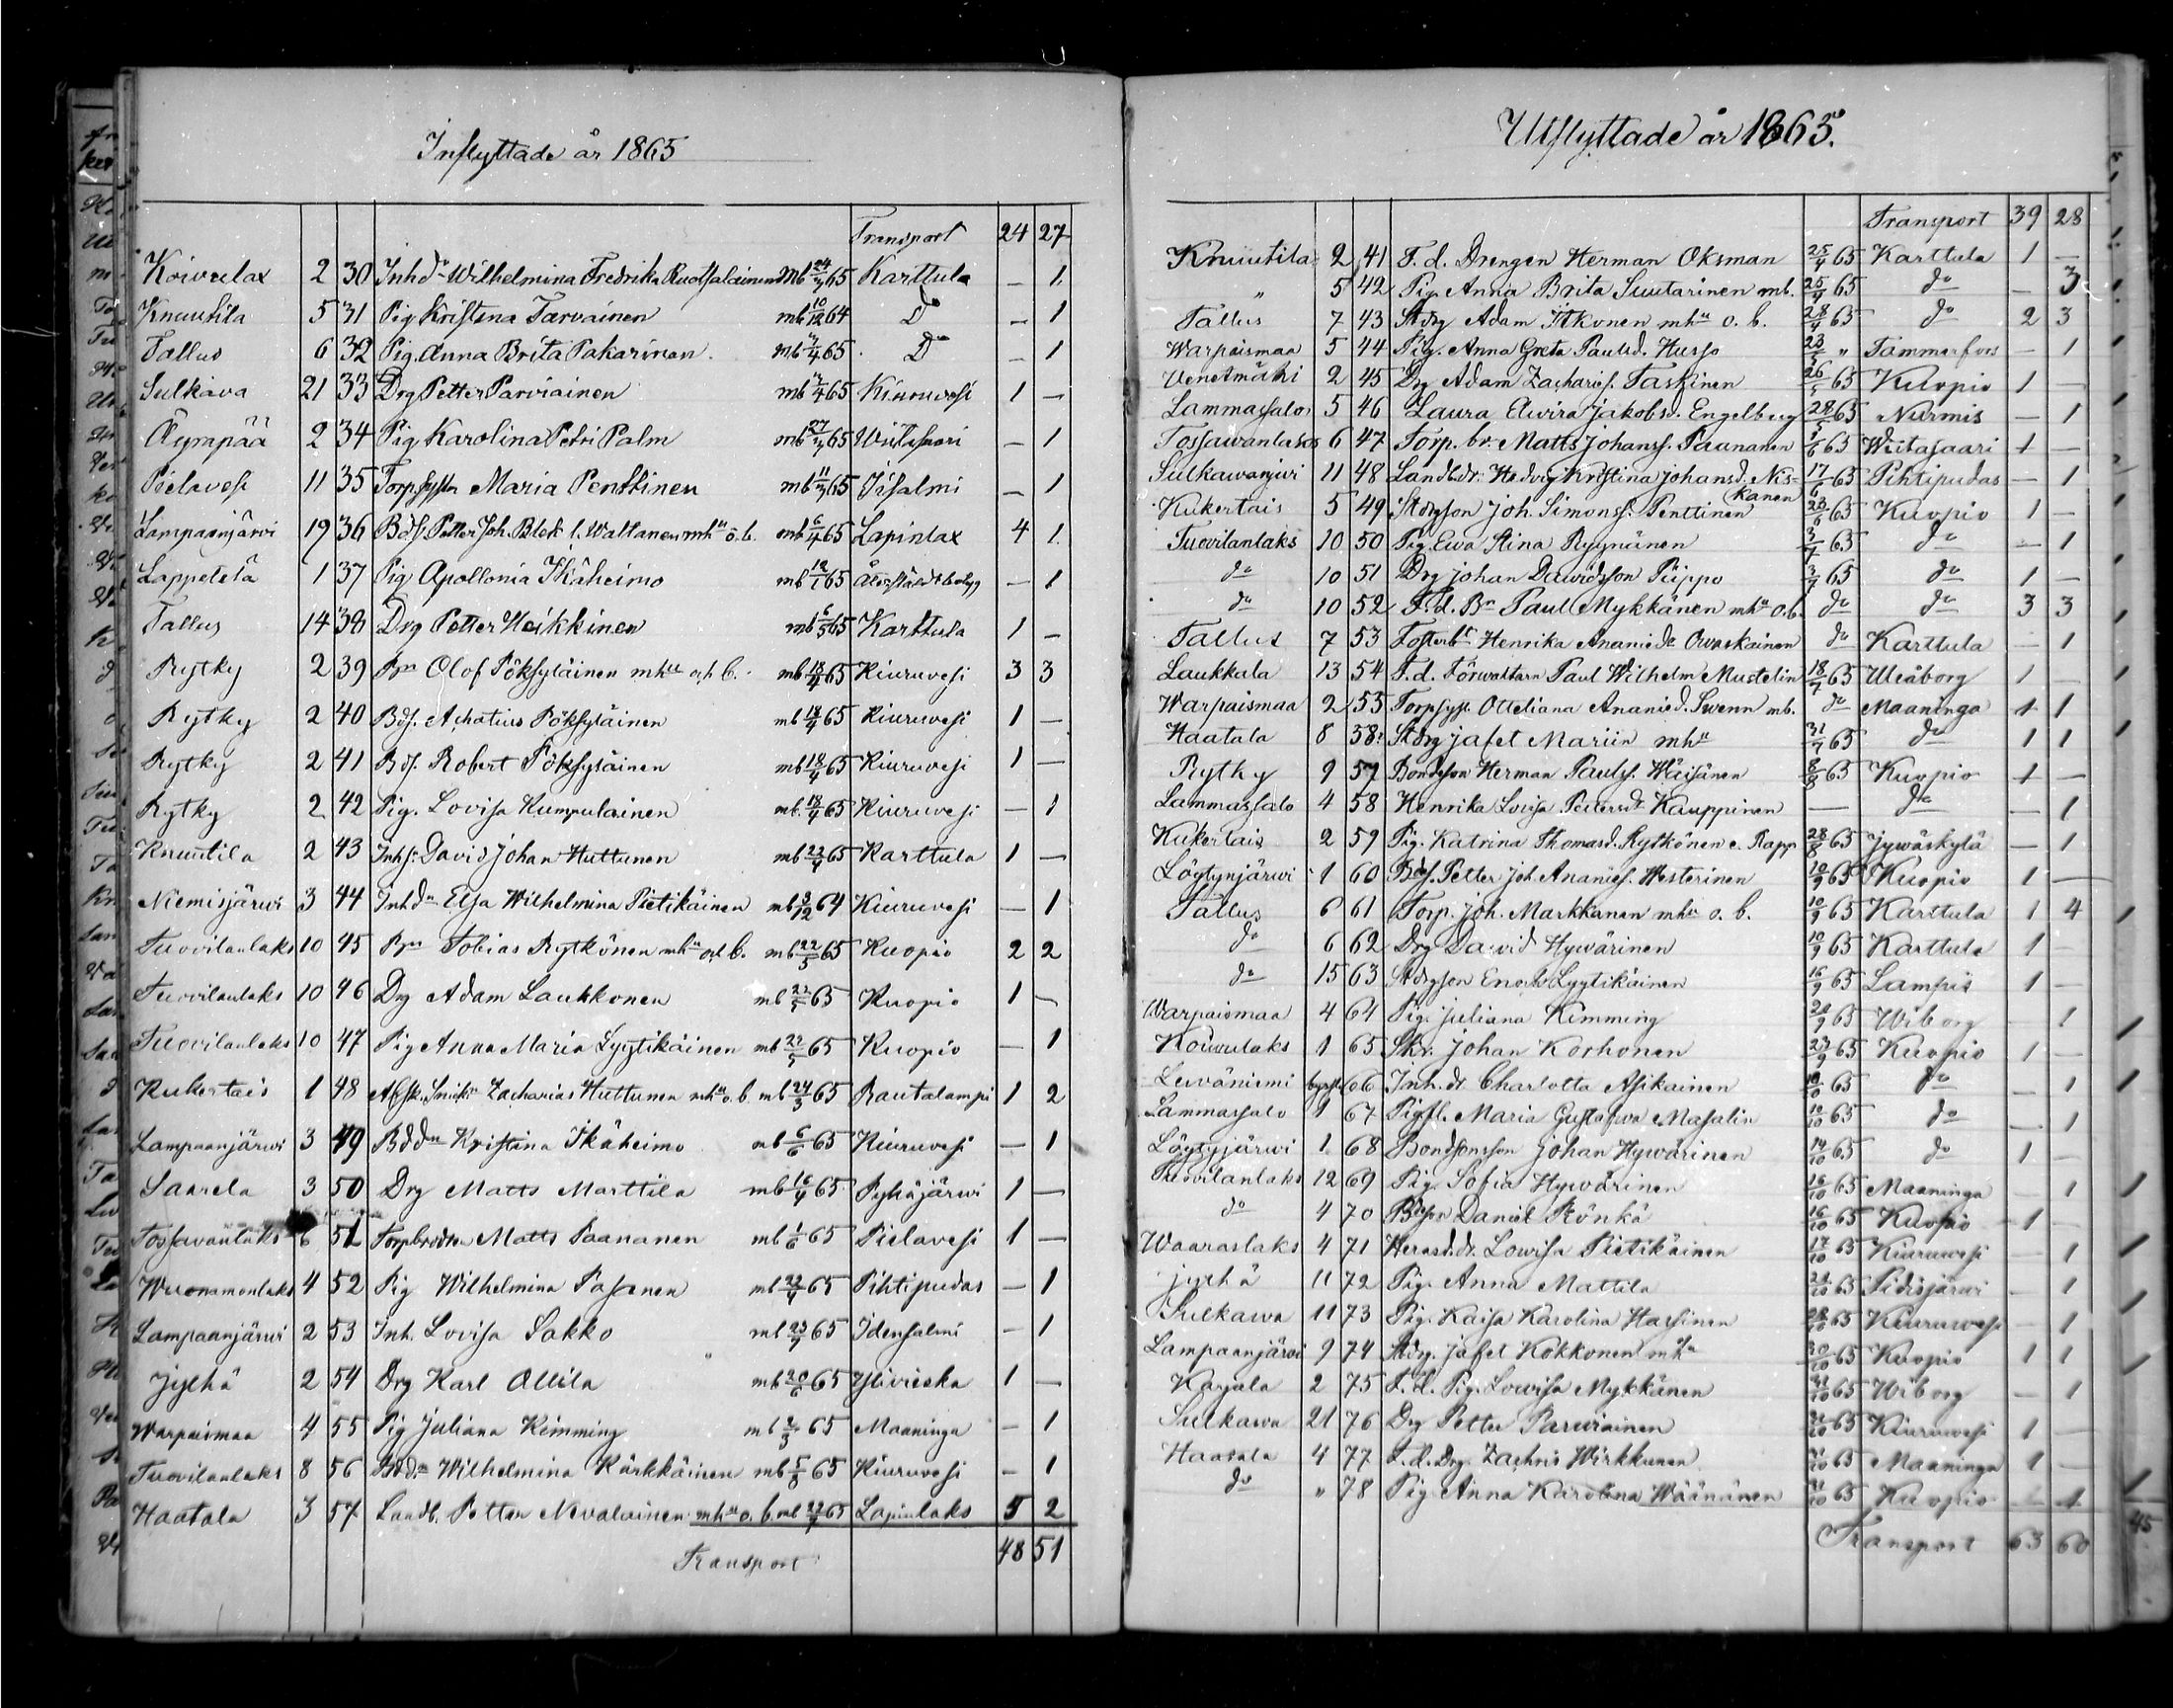 Inflyttade år 1865
Transport 24 27
Koivulax 2 30 Inhdr Wilhelmina Fredrika Ruotsalainen mb 24/3 65 Karttula — 1
Knuutila 5 31 Pig Kristina Tarvainen mb 10/12 64 Do — 1
Tallus 6 32 Pig. Anna Brita Pakarinen mb 2/4 65 Do — 1
Sulkava 21 33 Drg Petter Parviainen mb 2/4 65 Kiuruvesi 1 —
Äympää 2 34 Pig Karolina Petri Palm mb 27/3 65 Wiitasaari — 1
Pielavesi 11 35 Torp.syst. Maria Penttinen mb 11/3 65 Iisalmi — 1
Lampaanjärvi 19 36 Bds Petter Joh. Blek l. Waltanen mhu o. b. mb 6/4 65 Lapinlax 4 1
Lappetelä 1 37 Pig Apollonia Ikäheimo mb 12/1 65 — 1
Tallus 14 38 Drg Petter Heikkinen mb 6/5 65 Karttula 1 —
Rytky 2 39 Bn Olof Pöksyläinen mhu och b. mb 18/4 65 Kiuruvesi 3 3
Rytky 2 40 Bds. Achatius Pöksyläinen mb 18/4 65 Kiuruvesi 1 —
Rytky 2 41 Bds. Robert Pöksyläinen mb 18/4 65 Kiuruvesi 1 —
Rytky 2 42 Pig. Lovisa Kumpulainen mb 18/4 65 Kiuruvesi — 1
Knuutila 2 43 Inhs. David Johan Huttunen mb 22/4 65 Karttula 1 —
Niemisjärwi 3 44 Inhdr Elsa Wilhelmina Pietikäinen mb 3/12 64 Kiuruvesi — 1
Tuovilanlaks 10 45 Bn Tobias Rytkönen mhu och b. mb 22/5 65 Kuopio 2 2
Tuovilanlaks 10 46 Drg Adam Laukkonen mb 22/5 65 Kuopio 1 —
Tuovilanlaks 10 47 Pig Anna Maria Lyytikäinen mb 22/5 65 Kuopio — 1
Kukertais 1 48 Afsk. Snick. Zacharias Huttunen mhu o. b. mb 24/3 65 Rautalampi 1 2
Lampaanjärwi 3 49 Bddr Kristina Ikäheimo mb 6/6 65 Kiuruvesi — 1
Saarela 3 50 Drg Matts Marttila mb 16/4 65 Pyhäjärwi 1 —
Tossavanlaks 6 51 Torpbrodr Matts Paananen mb 1/6 65 Pielavesi 1 —
Wuonamonlaks 4 52 Pig Wilhelmina Pasanen mb 22/4 65 Pihtipudas — 1
Lampaanjärwi 2 53 Inh. Lovisa Sakko mb 23/7 65 Idensalmi — 1
Jylhä 2 54 Drg Karl Ollila mb 20/6 65 Ylivieska 1 —
Warpaismaa 4 55 Pig Juliana Kimming mb 2/5 65 Maaninga — 1
Tuovilanlaks 8 56 Bddr Wilhelmina Kärkkäinen mb 5/8 65 Kiuruvesi — 1
Haatala 3 57 Landb. Petter Nevalainen mhu o. b. mb 22/7 65 Lapinlaks 5 2
Transport 48 51
Utflyttade år 1865.
Transport 39 28
Knuutila 2 41 F. d. Drengen Herman Oksman 25/4 65 Karttula 1 —
" 5 42 Pig. Anna Brita Suutarinen mb. 25/4 65 do — 3
Tallus 7 43 Stdrg Adam Itkonen mhu o. b. 28/4 65 do 2 3
Warpaismaa 5 44 Pig. Anna Greta Paulsd. Husso 23/5 " Tammerfors — 1
Venetmäki 2 45 Drg Adam Zachariss. Taskinen 26/5 65 Kuopio 1 —
Lammassalo 5 46 Laura Elwira Jakobsd. Engelberg 28/5 65 Nurmis — 1
Tossawanlaks 6 47 Torp. br. Matts Johanss. Paananen 1/6 65 Witasaari 1 —
Sulkawanjwi 11 48 Landb.dr. Hedvig Kristina Johansd. Nis= 17/6 65 Pihtipudas — 1
kanen
Kukertais 5 49 Stdrgson Joh. Simonss. Penttinen 23/6 65 Kuopio 1 —
Tuovilanlaks 10 50 Pig. Ewa Stina Ryynänen 3/7 65 do — 1
do 10 51 Drg Johan Dawidsson Piippo 3/7 65 do 1 —
do 10 52 F. d. Bn Paul Mykkänen mhu o. b. do do 3 3
Tallus 7 53 Henrika Ananiedr Owaskainen do Karttula — 1
Laukkala 13 54 F. d. Förwaltarn Paul Wilhelm Mustelin 18/7 65 Uleåborg 1 —
Warpaismaa 2 55 Torpsyst. Otteliana Ananied. Swenn mb. do Maaninga 1 1
Haatala 8 58? Stdrg Jafet Mariin mhu 31/7 65 do 1 1
Rytky 9 57 Bondeson Herman Paulss. Wäisänen 8/8 65 Kuopio 1 —
Lammassalo 4 58 Henrika Lovisa Pettersdr Kauppinen — do — 1
Kukertais 2 59 Pig. Katrina Thomasd. Rytkönen e. Rapp 28/8 65 Jywäskylä — 1
Löytynjärwi 1 60 Bds. Petter Joh. Ananiess. Westerinen 10/9 65 Kuopio 1 —
Tallus 6 61 Torp. Joh. Markkanen mhu o. b. 10/9 65 Karttula 1 4
do 6 62 Drg David Hywärinen 10/9 65 Karttula 1 —
do 15 63 Stdrgson Enok Lyytikäinen 16/9 65 Lampis 1 —
Warpaismaa 4 64 Pig. Juliana Kimming 22/9 65 Wiborg 1
Koiwulaks 1 65 Skr. Johan Korhonen 23/9 65 Kuopio 1 —
Lewäniemi 66 Inh.dr Charlotta Asikainen 10/10 65 do — 1
Lammassalo 1 67 Pigfl. Maria Gustafwa Masalin 10/10 65 do — 1
Löytyjärwi 1 68 Bondsonsson Johan Hywärinen 14/10 65 do 1 —
Tuovilanlaks 12 69 Pig. Sofia Hywärinen 16/10 65 Maaninga — 1
do 4 70 Bdson Daniel Rönkä 16/10 65 Kuopio 1 —
Waaraslaks 4 71 Lowisa Pietikäinen 17/10 65 Kiuruwesi — 1
Jylhä 11 72 Pig. Anna Mattila 21/10 65 Pidisjärwi — 1
Sulkawa 11 73 Pig. Kaisa Karolina Hassinen 28/10 65 Kiuruwesi — 1
Lampaanjärwi 9 74 Stdrg. Jafet Kokkonen mhu 30/10 65 Kuopio 1 1
Karjala 2 75 F. d. Pig. Lowisa Mykkänen 31/10 65 Wiborg — 1
Sulkawa 21 76 Drg Petter Parwiainen 31/10 65 Kiuruwesi 1 —
Haatala 4 77 F. d. Drg. Zachris Wirkkunen 31/10 65 Maaninga 1 —
do " 78 Pig Anna Karolina Wäänänen 31/10 65 Kuopio — 1
Transport 63 60
45